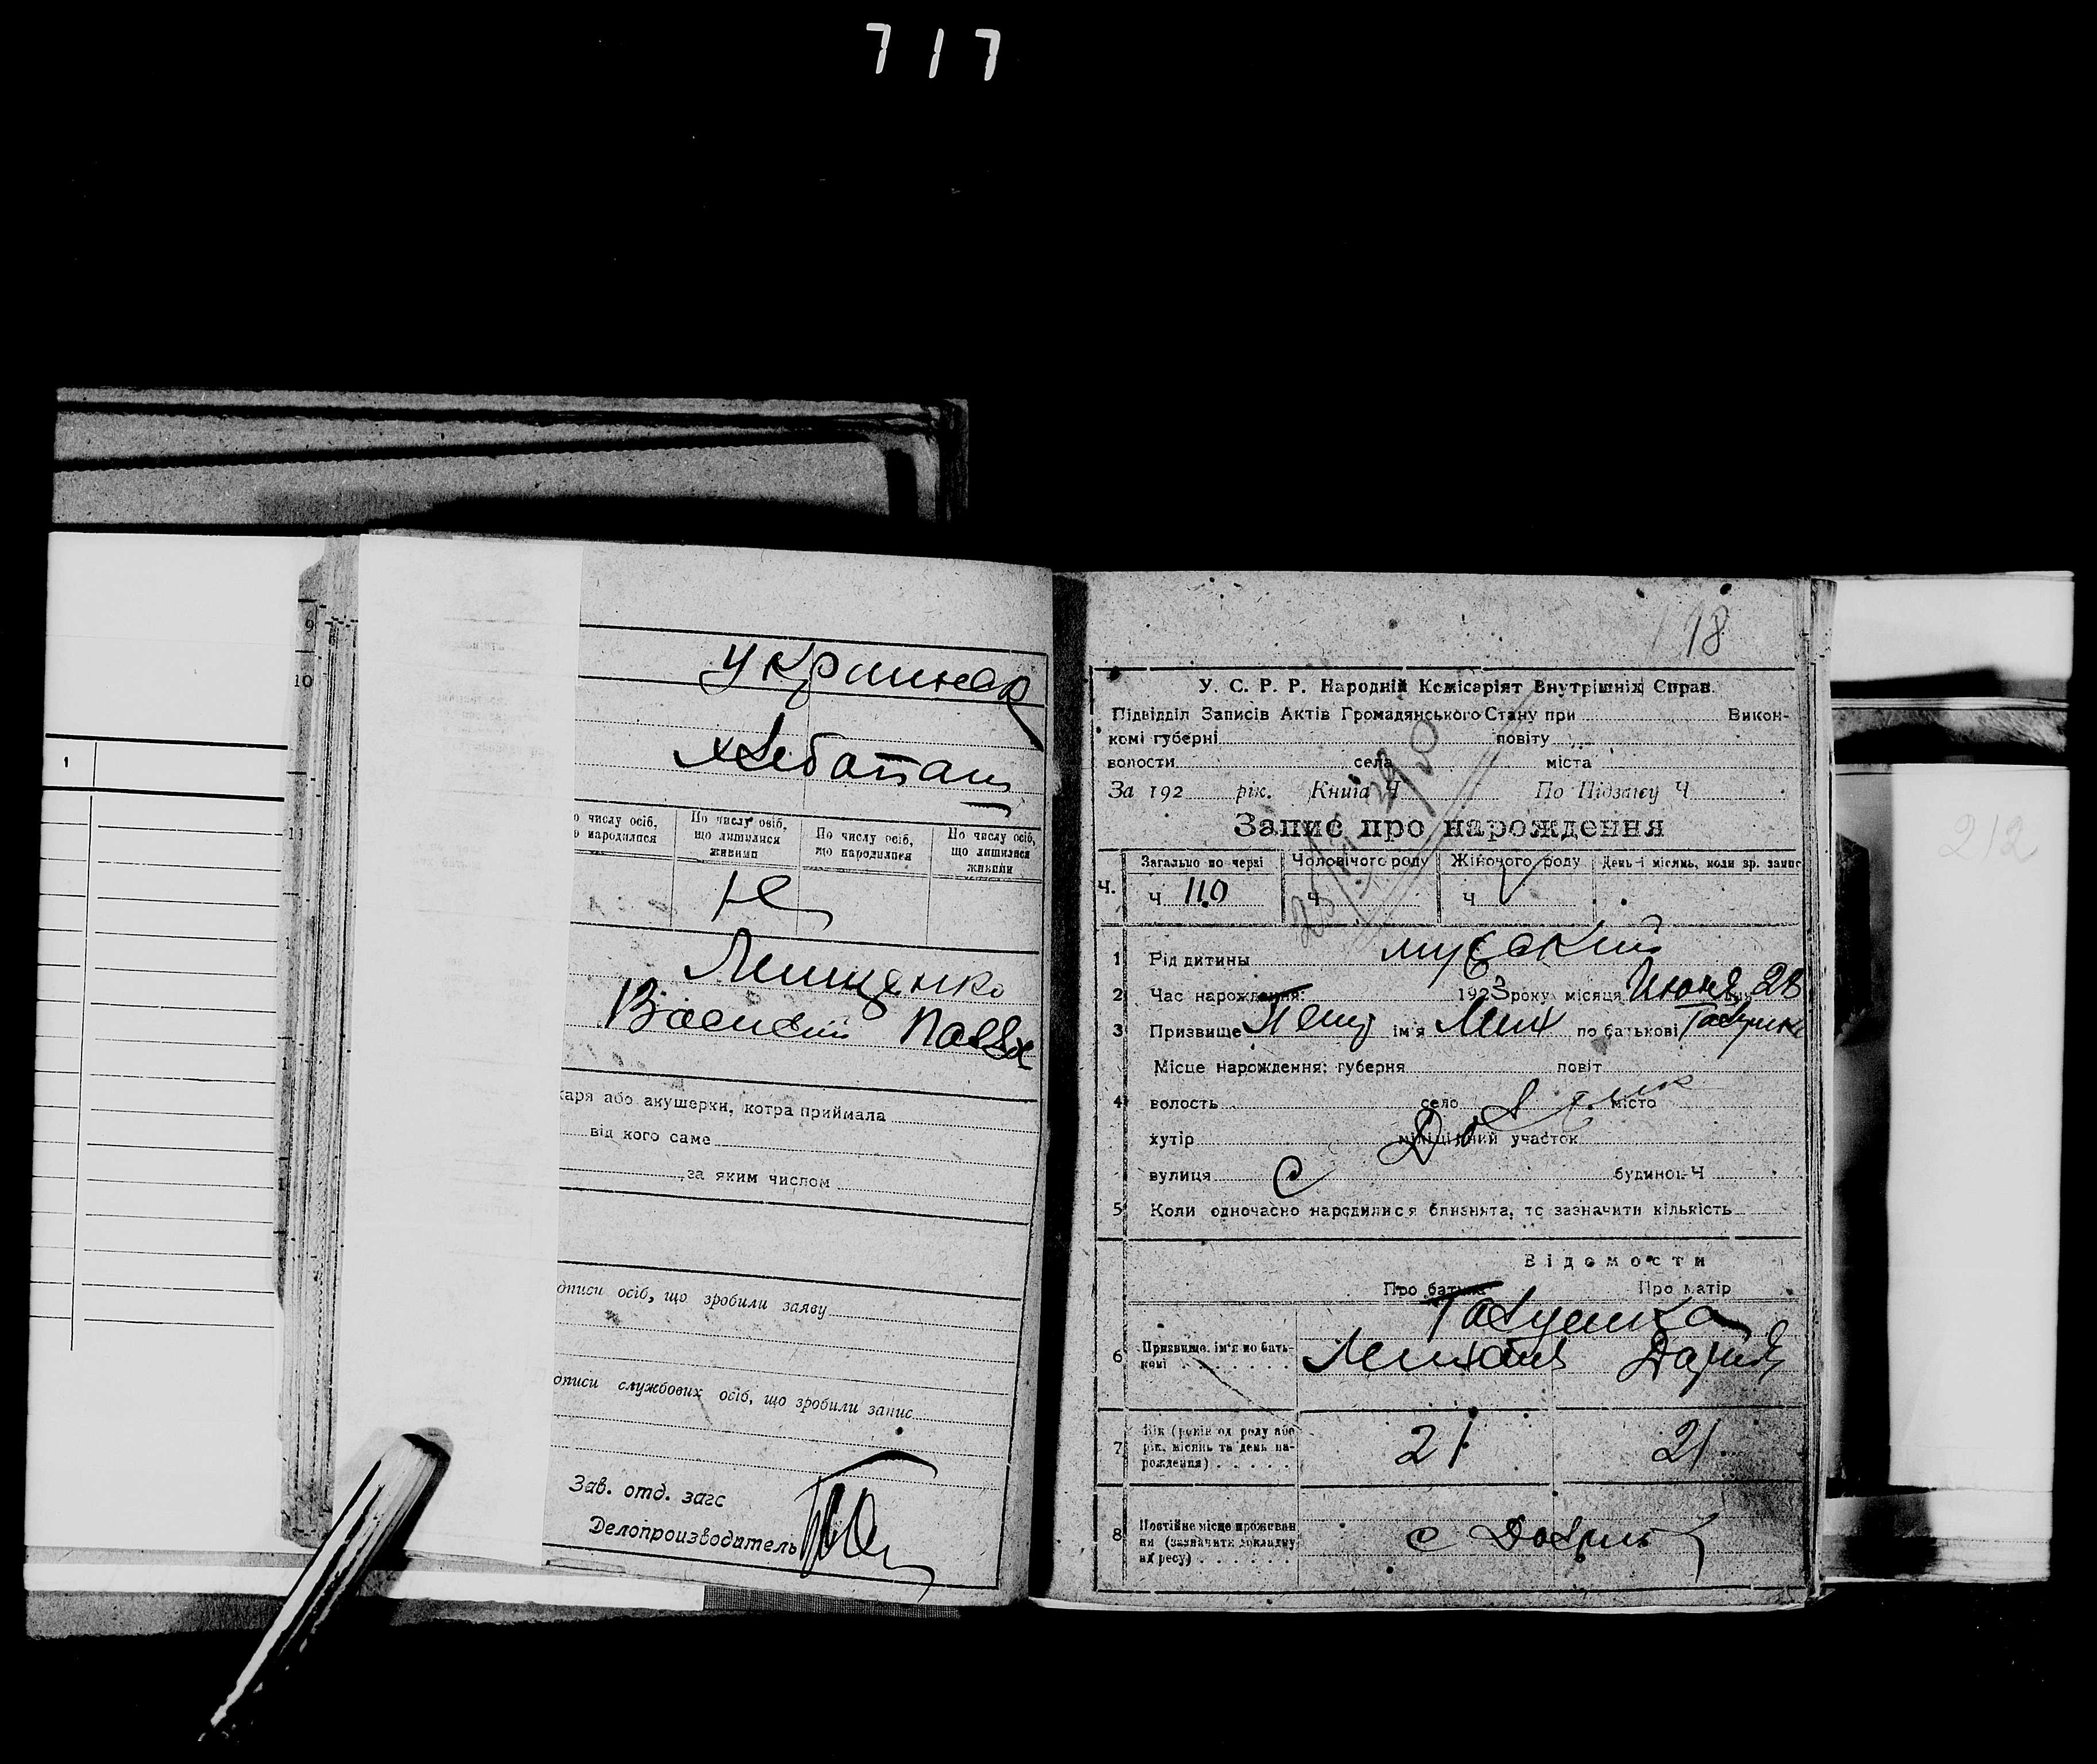 717
9
10
1
11
Украинск
хлебопаш
о числу осіб,
о народилася
По числу осіб,
що лишилися
живими
По числу осіб,
що народилися
По числу осіб,
що лишилися
живими
Не
Лищенко
Василий Павл
каря або акушерки, котра приймала
від кого саме
за яким числом
дписи осіб, що зробили заяву
дписи службових осіб, що зробили запис
Зав. отд. загс
Делопроизводитель
18
У. С. Р. Р. Народній Комісаріят Внутрішніх Справ.
Підвідділ Записів Актів Громадянського Стану при Викон-
комі губерні повіту
волости села міста
За 192 рік. Книга Ч По Підзагсу Ч
Запис про народження
Загально по черзі Чоловічого роду Жіночого роду День і місяць, коли зр. запис
Ч. Ч 110 Ч Ч
212
1 Рід дитини мужский
2 Час народження: 1923 року місяця Июня 28
3 Призвище ім'я Мих по батькові
Місце народження: губерня повіт
4 волость село місто
хутір міліційний участок
вулиця С будинок Ч
5 Коли одночасно народилися близнята, то зазначити кількість
Відомости
Про батька Про матір
6 Призвище, ім'я по бать-
кові
Михаил Дария
7 Вік (років од роду або
рік, місяць та день на-
рождення)
21 21
8 Постійне місце прожеван
ня (зазначити докладну
адресу)
с